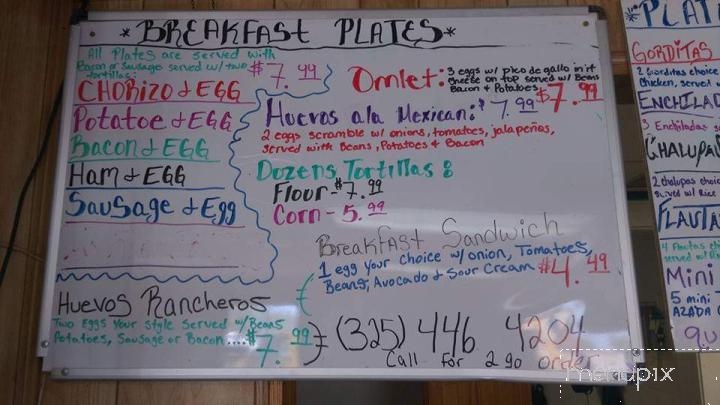 *BREAKFAST PLATES*
All Plates are served with
Bacon or Sausage served w/ two
tortillas: $7.99
CHORIZO & EGG
Potatoe & EGG
Bacon & EGG
Ham & EGG
Sausage & Egg
Huevos Rancheros
Two Eggs Your style Served w/Beans
Potatoes, Sausage or Bacon.... $7.99
Omlet: 3 eggs w/ pico de gallo in it
cheese on top served w/ Beans
Bacon & Potatoes $7.99
Huevos ala Mexican: $7.99
2 eggs scramble w/ onions, tomatoes, jalapeños,
served with Beans, Potatoes & Bacon
Dozens Tortillas:
Flour - $7.99
Corn - 5.99
Breakfast Sandwich
1 egg your choice w/ onion, Tomatoes,
Beans, Avocado & Sour Cream $4.49
(325) 446 4204
Call For 2 go order
*PLAT
GORDITAS
2 Gorditas choic
Chicken, served w
ENCHILAD
3 Enchiladas
CHALUPA
2 chalupas choic
served w/ Rice
FLAUTA
4 Flautas
served w/
Mini
5 mini
AZADA
9.
menupix